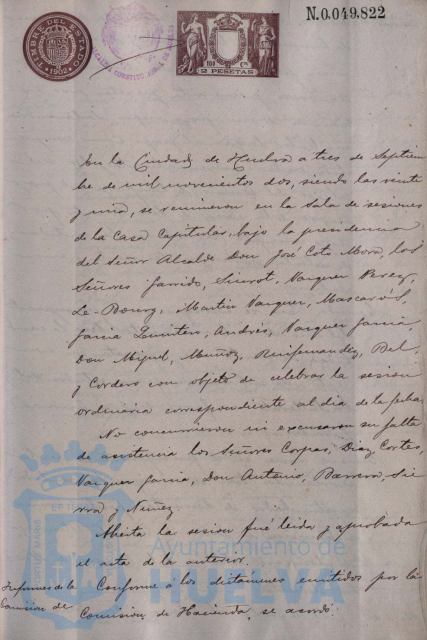 N.0.049.822
TIMBRE DEL ESTADO
1902
2 PESETAS
En la Ciudad de Huelva a tres de Septiem
bre de mil novecientos dos, siendo las veinte
y una, se reunieron en la Sala de sesiones
de la Casa Capitular, bajo la presidencia
del Señor Alcalde Don José Coto Mora, los
Señores Garrido, Vazquez Perez,
Le-Bourg, Martin Vazquez, Mascarós,
Garcia Quintero, Andrés, Vazquez Garcia,
Don Miguel, Muñoz, Ruifernandez, Bel
y Cordero con objeto de celebrar la sesion
ordinaria correspondiente al dia de la fecha.
No concurrieron ni excusaron su falta
de asistencia los Señores Corpas, Diaz, Cortes,
Vazquez Garcia, Don Antonio, Barrera, Sie
rra y Nuñez.
Abierta la sesion fué leida y aprobada
el acta de la anterior.
Informes de la
Comision de
Conforme á los dictamenes emitidos por la
Comision de Hacienda, se acordó:
Ayuntamiento de
HUELVA